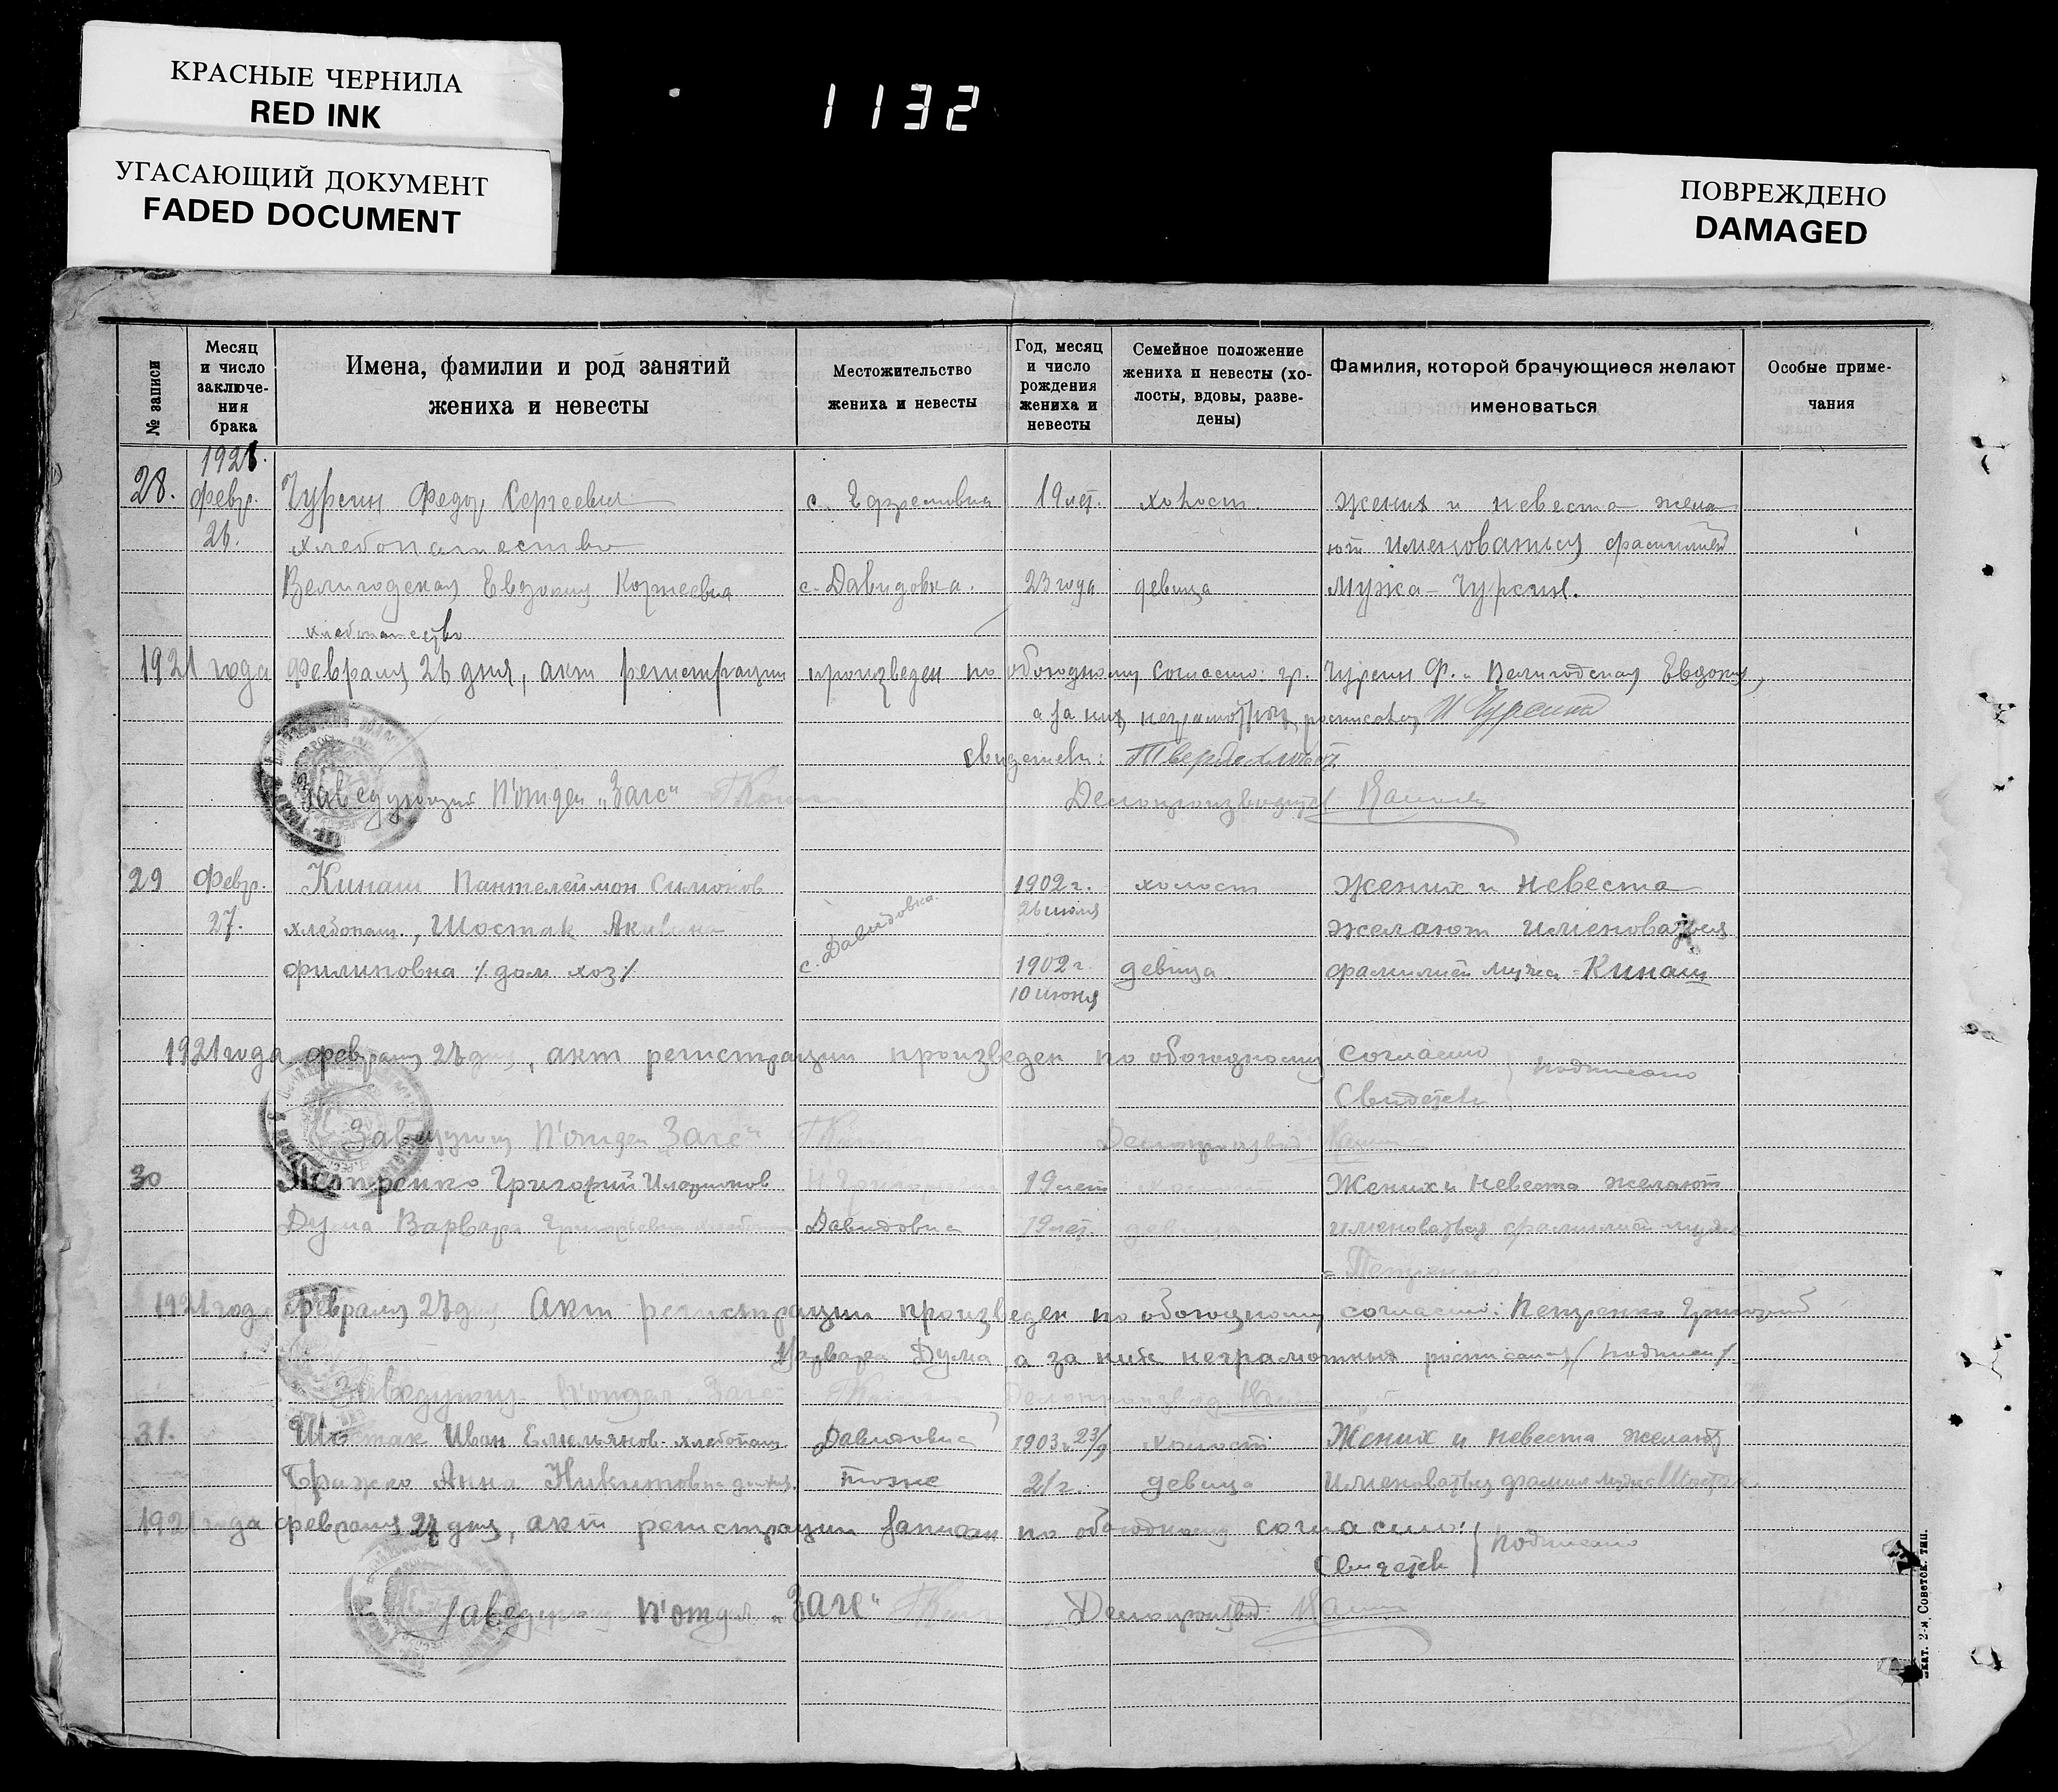 КРАСНЫЕ ЧЕРНИЛА
RED INK
УГАСАЮЩИЙ ДОКУМЕНТ
FADED DOCUMENT
1132
ПОВРЕЖДЕНО
DAMAGED
№ записи
Месяц и число заключе-ния брака
Имена, фамилии и род занятий жениха и невесты
Местожительство жениха и невесты
Год, месяц и число рождения жениха и невесты
Семейное положение жениха и невесты (хо-лосты, вдовы, разве-дены)
Фамилия, которой брачующиеся желают именоваться
Особые приме-чания
1921.
28. февр. Чурсин Федор Сергеевич с. Ефремовка 19 лет. холост. Жених и невеста жела
26. хлебопашество ют именоваться фамилией
Велигодская Евдокия Корнеевна с. Давидовка. 23 года девица мужа – Чурсин.
хлебопашество
1921 года февраля 26 дня, акт регистрации произведен по обоюдному согласию: гр. Чурсин Ф. и Велигодская Евдокия,
а за них неграмотных росписался И Чурсин
Свидетели: Твердохлеб
Заведующий П'отдел „Загс" Делопроизводител
29 Февр. Кинаш Пантелеймон Симонов 1902 г. холост Жених и невеста
26 июля
27. хлебопаш., Шостак Акилина с. Давидовка. желают именоваться
филиповна /дом хоз/ 1902 г. девица фамилией мужа – Кинаш
10 июня
1921 года февраля 27 дня, акт регистрации произведен по обоюдному согласию
подписано
Свидетели
Заведующ П'отдел „Загс" Делопроизвод
30 Петренко Григорий Иларионов 19 лет холост Жених и невеста желают
Дума Варвара Григорьевна Давидовка 19 лет. девица именоваться фамилией мужа
– Петренко
1921 года февраля 27 дня Акт регистрации произведен по обоюдному согласию: Петренко Григорий
Варвара Дума, а за них неграмотных росписался /подписи/
Заведующ. П'отдел. Загс Делопроизвод
31. Шостак Иван Емельянов хлебопаш. Давидовка 1903 г. 23/9 холост Жених и невеста желают
Брижко Анна Никитовна тоже 21 г. девица именоваться фамил мужа Шостак
1921 года февраля 27 дня, акт регистрации записан по обоюдному согласию:
Свидетели подписано
Заведующ П'отдел „Загс" Делопроизвод.
Екат. 2-я Советск. тип.